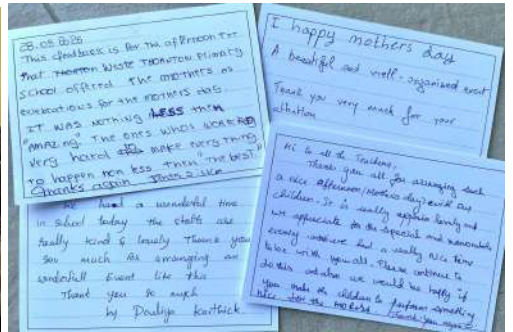 28.03.2025
This feedback is for the afternoon
that Weste THORNTON Primary
School offered The mothers as
for the mothers day.
IT was NOTHING LESS then
"amazing." The ones who's
very hard make everything
TO happen non less Then "The best."
Thanks again
I happy mothers day
A beautiful and well-organised event
Thank you very much for your
attention
We had a wonderful time
in school today the staffs are
really kind & lovely Thank you
soo much As arranging an
Event like this
Thank you so much
by Karthick
Hi to all the Teachers,
Thank you all for arranging such
a nice afternoon (Mothers day) with our
children. It is really lovely and
we appreciate for the special and memorable
we had a really nice time
here with you all. Please continue to
do this we would be happy if
you make the children to perform something
nice for the mothers. Thank you